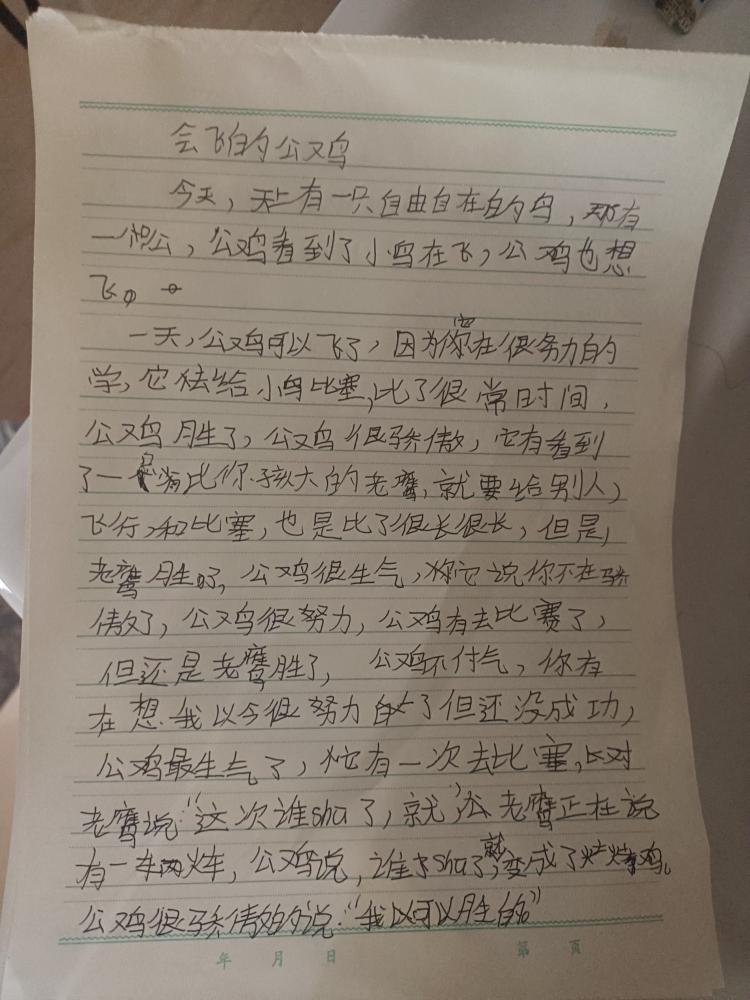 会飞的公鸡
今天，天上有一只自由自在的鸟，那有
一公，公鸡看到了小鸟在飞，公鸡也想
飞。
一天，公鸡可以飞了，因为它在很努力的
学，它给小鸟比塞，比了很常时间，
公鸡胜了，公鸡很骄傲，它有看到
了一只比你孩大的老鹰，就要给别人，
飞行，和比塞，也是比了很长很长，但是，
老鹰胜了，公鸡很生气，它说你不在骄
傲了，公鸡很努力，公鸡有去比赛了，
但还是老鹰胜了， 公鸡不付气，你有
在想我以今很努力了但还没成功，
公鸡最生气了，忙有一次去比塞，对
老鹰说“这次谁sha了，就，老鹰正在说
有一车两火车，公鸡说，谁sha了，就变成了烤鸡，
公鸡很骄傲的说：“我以可以胜的”
年 月 日 第 页